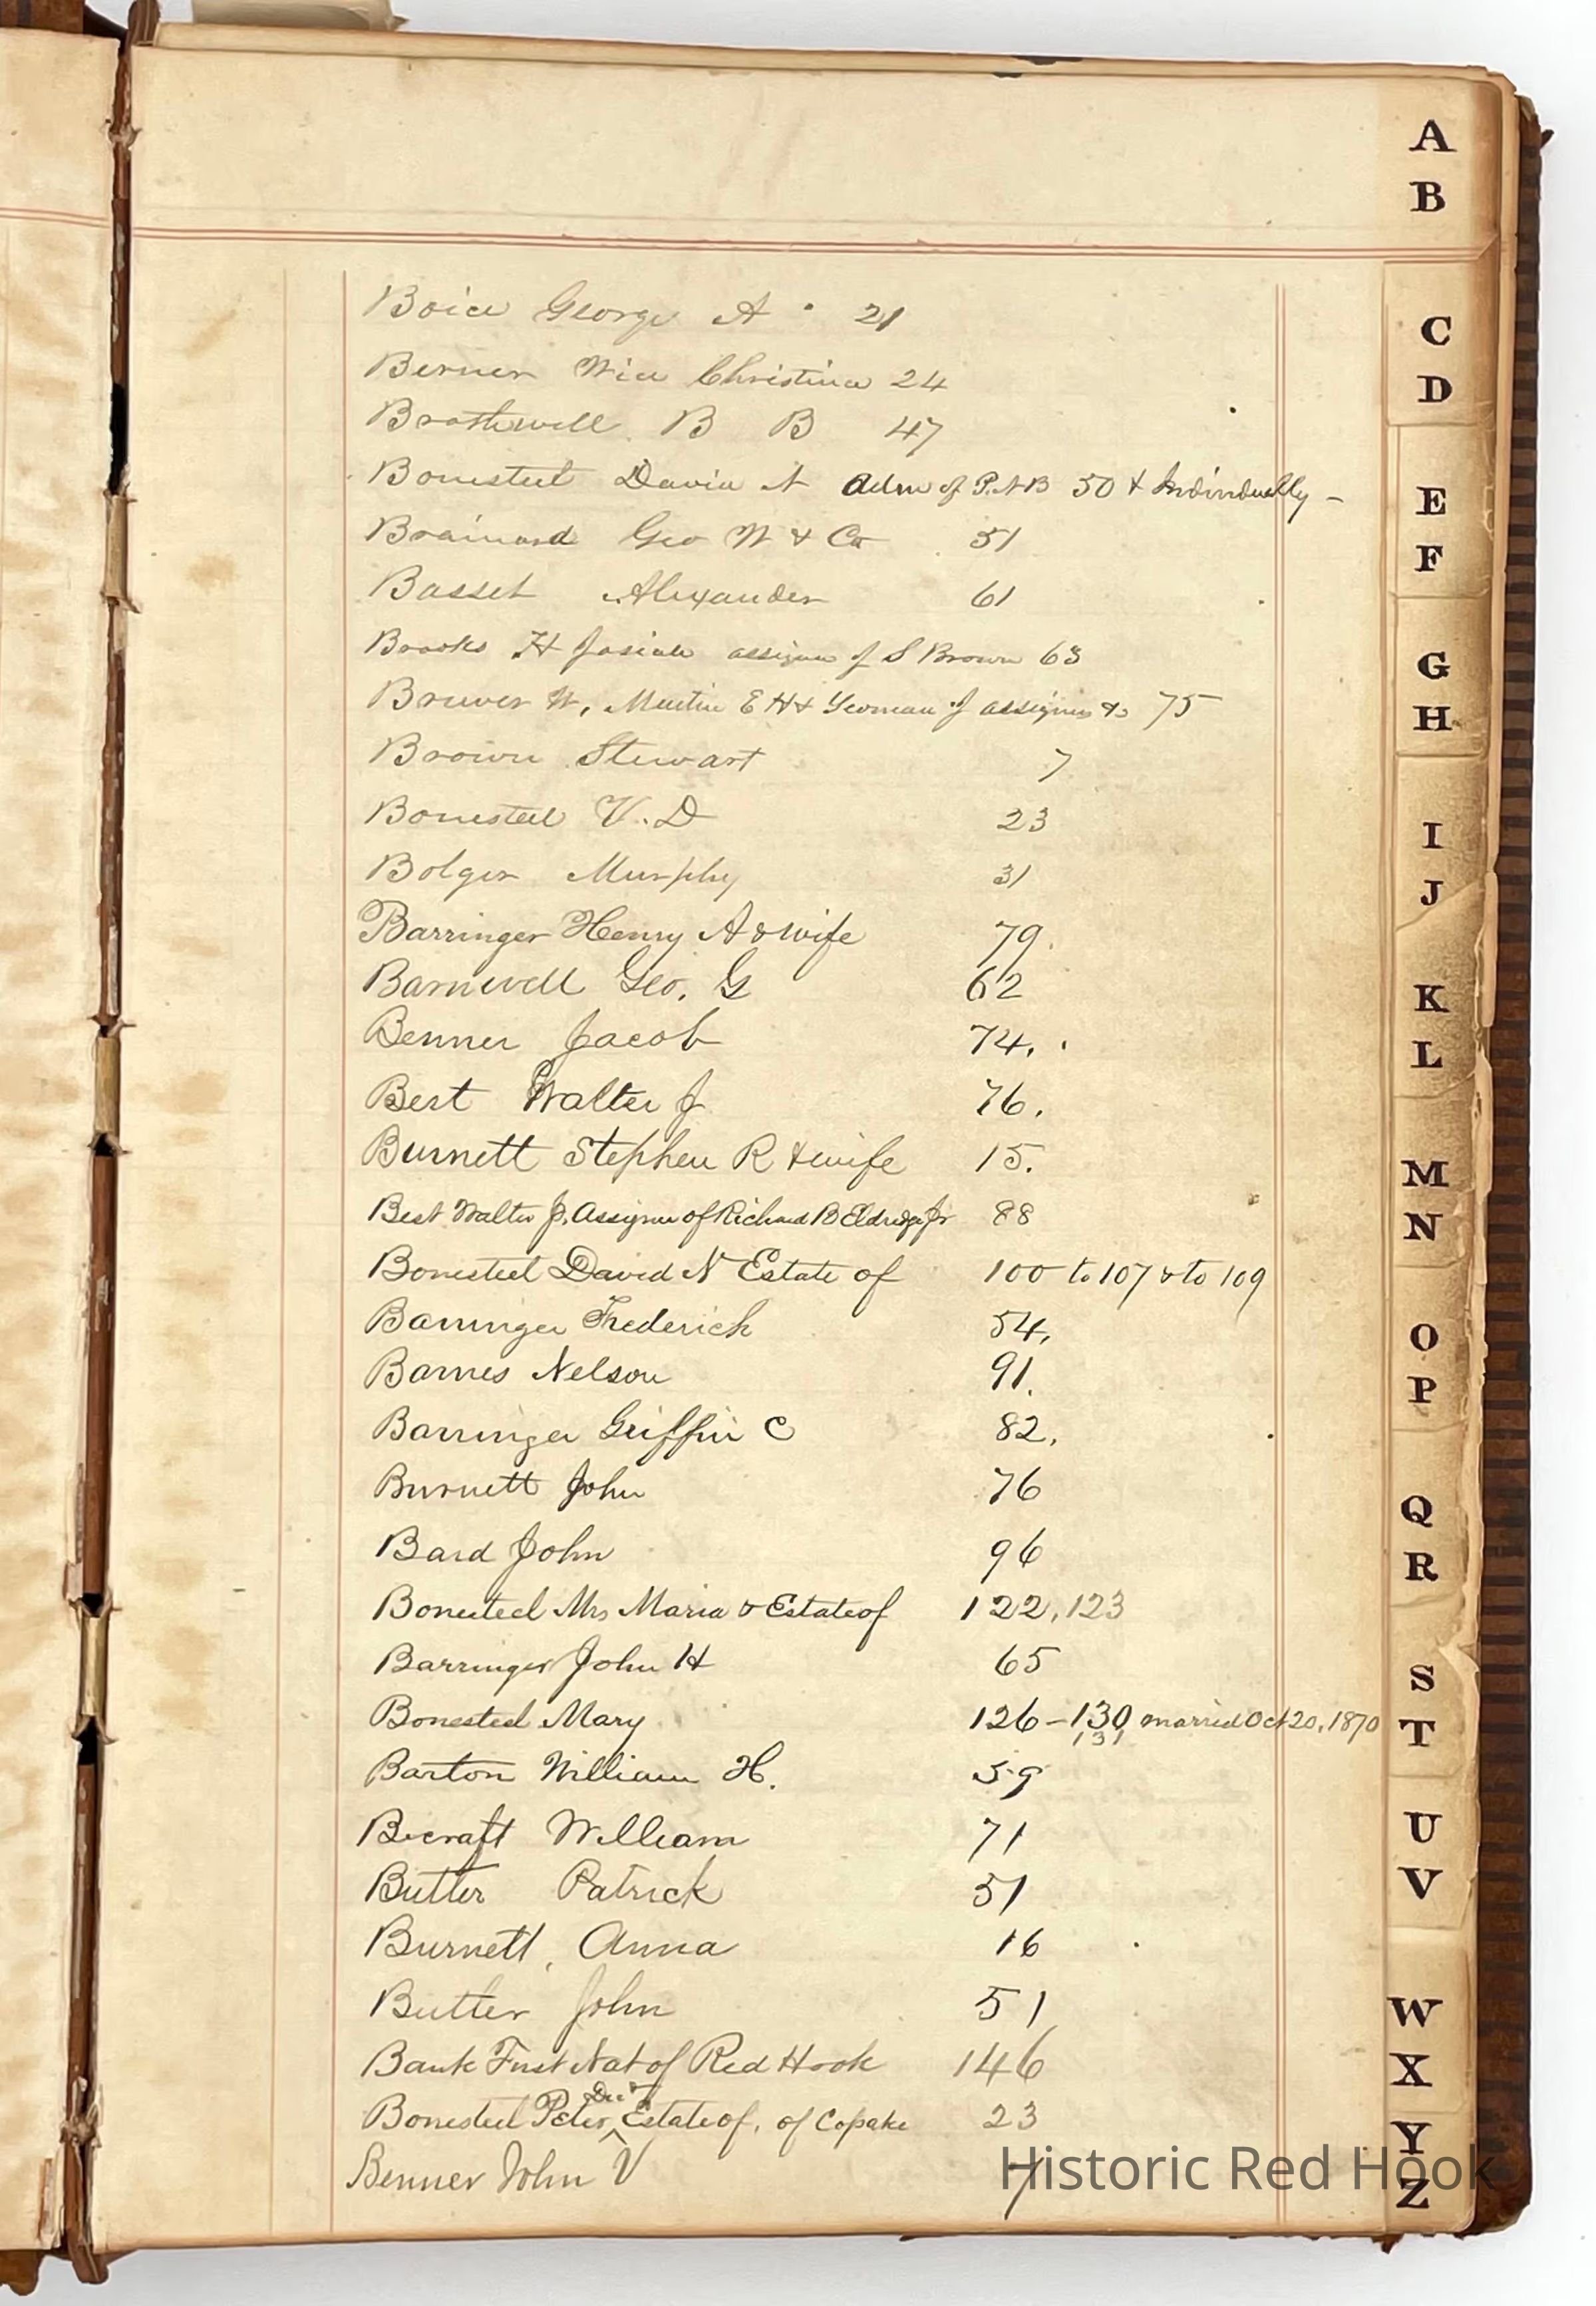 A
B
C
D
E
F
G
H
I
J
K
L
M
N
O
P
Q
R
S
T
U
V
W
X
Y
Z
Boice George A 21
Berner Christina 24
Brothwell B B 47
Bonesteel David N Adm of P.N.B 50 & Individually -
Brainard Geo W & Co 51
Basset Alexander 61
Brooks H Josiah assignee of S Brown 63
Brewer W, Martin E H & Yeoman J assignees &c 75
Brown Stewart 7
Bonesteel V. D 23
Bolger Murphy 31
Barringer Henry A & wife 79.
Barnwell Geo. G 62
Benner Jacob 74.
Best Walter J 76.
Burnett Stephen R & wife 15.
Best Walter J. Assignee of Richard B Eldridge Jr 88
Bonesteel David N Estate of 100 to 107 & to 109
Barringer Frederick 54,
Barnes Nelson 91.
Barringer Griffin C 82.
Burnett John 76
Bard John 96
Bonesteel Mrs Maria & Estate of 122, 123
Barringer John H 65
Bonesteel Mary 126 - 130 married Oct 20, 1870
131
Barton William H. 59
Becraft William 71
Butler Patrick 51
Burnett, Anna 16
Butler John 51
Bank First Nat of Red Hook 146
Bonesteel Peter Dec'd Estate of, of Copake 23
Benner John V 7
Historic Red Hook